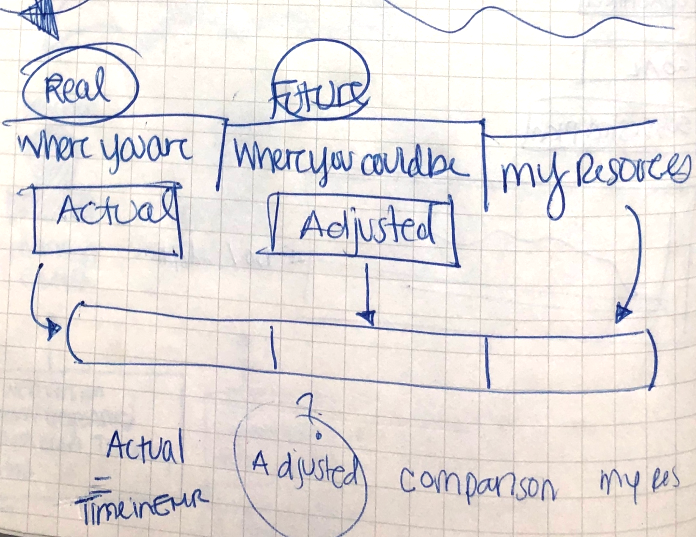 Real
Future
where you are
where you could be
my Resources
Actual
Adjusted
?
Actual
=
Time in EMR
Adjusted
comparison
my res